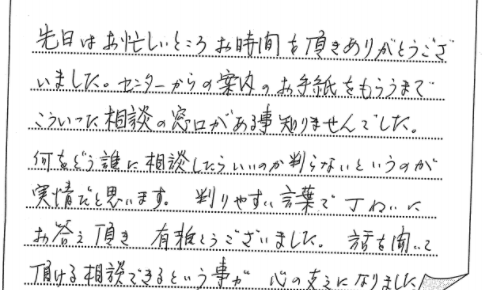 先日はお忙しいところお時間を頂きありがとうござ
いました。センターからの案内のお手紙をもらうまで
こういった相談の窓口がある事知りませんでした。
何をどう誰に相談したらいいのか判らないというのが
実情だと思います。判りやすい言葉で丁ねいに
お答え頂き 有難うございました。話を聞いて
頂ける相談できるという事が 心の支えになりました